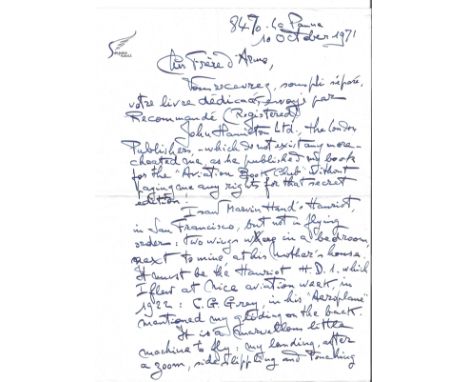 8470. La Panne
10 October 1971
Cher Frère d'Arme,
Vous recevrez, sous pli séparé,
votre livre dédicacé, envoyé par
Recommandé (Registered)
John Hamilton Ltd, the London
Publishers, - which do not exist any more -
cheated me, as he published my book
for the "Aviation Book Club" without
paying me any rights for that secret
edition.
I saw Marvin Hand's Hanriot,
in San Francisco, but not in flying
order: Two wings were in a bedroom,
next to mine at his mother's house.
It must be the Hanriot H.D.1. which
I flew at Nice aviation week, in
1922: C.G. Grey, in his "Aeroplane"
mentioned my gliding on the back.
It is a marvellous little
machine to fly: my landing, after
a zoom, side slipping and touching